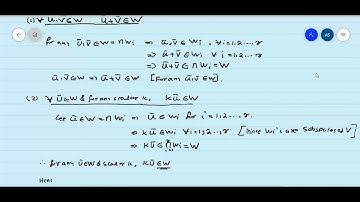 (1) ∀ ū,v̄ ∈ W  ū+v̄ ∈ W
for any ū,v̄ ∈ W = ∩Wi ⇒ ū,v̄ ∈ Wi, ∀ i=1,2,...,r
⇒ ū+v̄ ∈ Wi ∀ i=1,2,...,r
⇒ ū+v̄ ∈ ∩Wi = W
ū,v̄ ∈ W ⇒ ū+v̄ ∈ W [for any ū,v̄ ∈ W]
(2) ∀ ū ∈ W & for any scalar k, kū ∈ W
Let ū ∈ W ⇒ ū ∈ Wi for i=1,2,...,r
⇒ kū ∈ Wi ∀ i=1,2,...,r [since Wi's are subspaces of V]
⇒ kū ∈ ∩Wi = W
∴ for any ū ∈ W & scalar k, kū ∈ W
Hen
AS